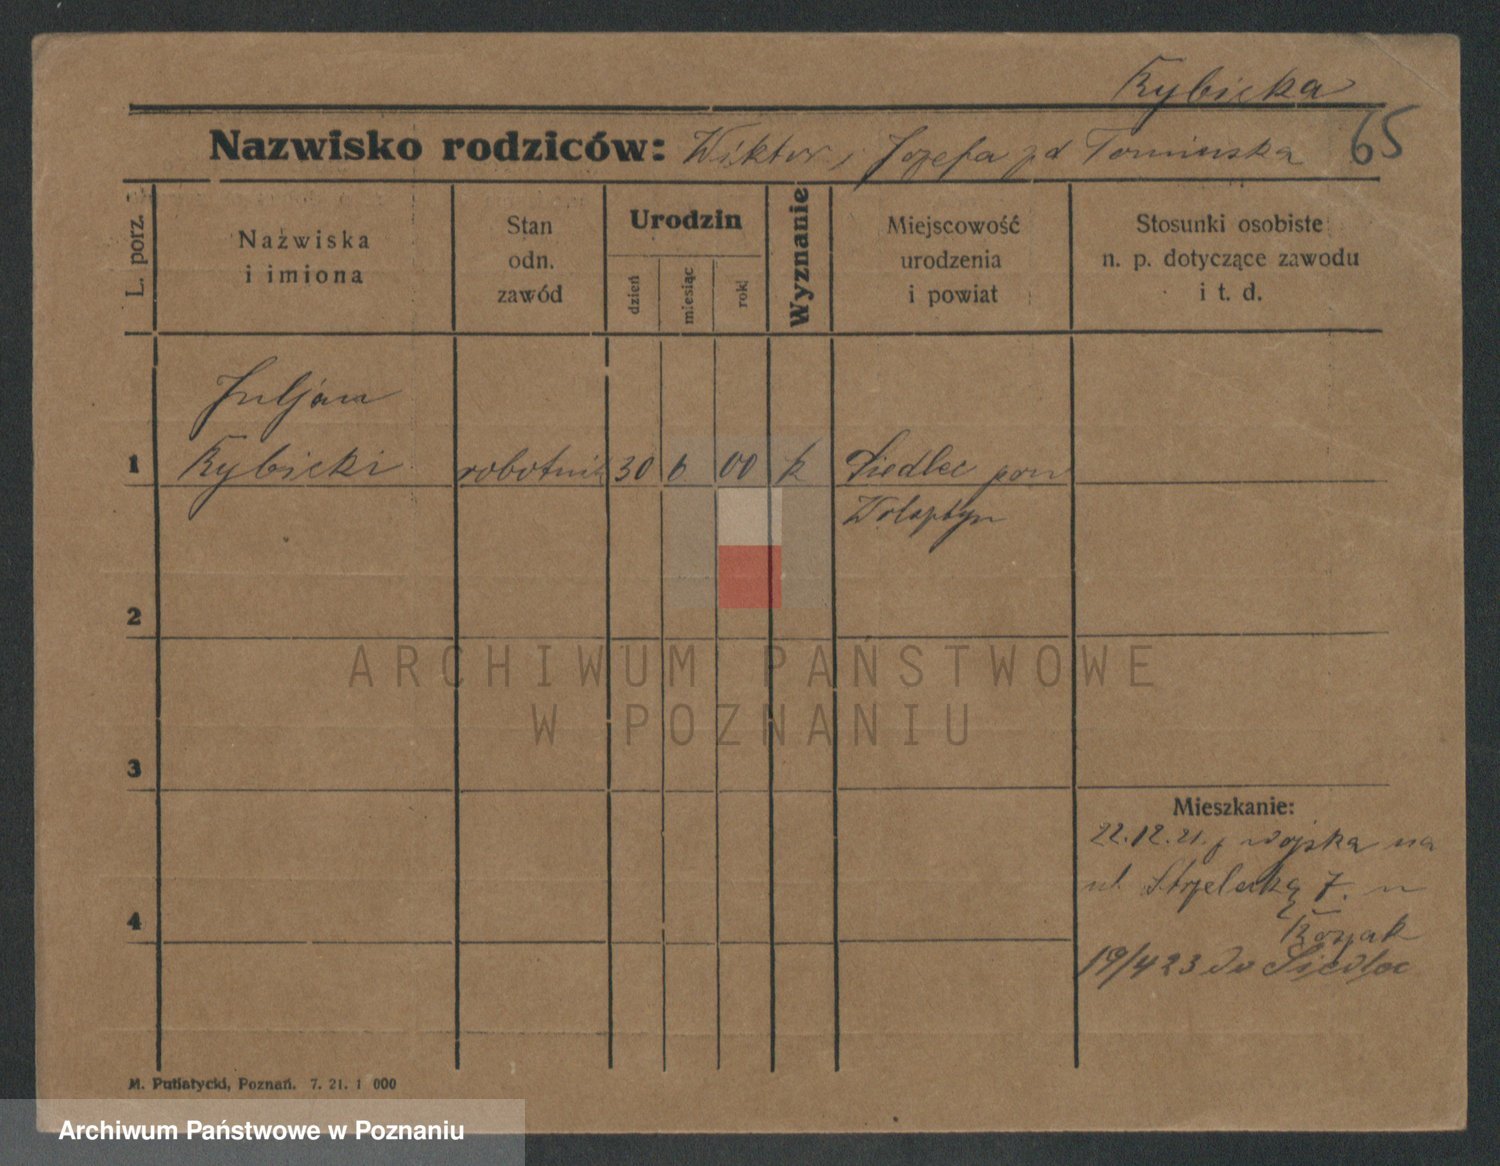 Rybicka
Nazwisko rodziców: Wiktor i Józefa zd Tominska 65
L. porz.
Nazwiska
i imiona
Stan
odn.
zawód
Urodzin
dzień
miesiąc
rok
Wyznanie
Miejscowość
urodzenia
i powiat
Stosunki osobiste
n. p. dotyczące zawodu
i t. d.
Juljan
1 Rybicki robotnik 30 6 00 k Siedlec pow
Wolsztyn
2
ARCHIWUM PAŃSTWOWE
W POZNANIU
3
Mieszkanie:
22.12.21. z wojska na
ul. Strzelecką 7. u
4
19/4 23 do Siedlec
M. Putiatycki, Poznań. 7. 21. 1 000
Archiwum Państwowe w Poznaniu